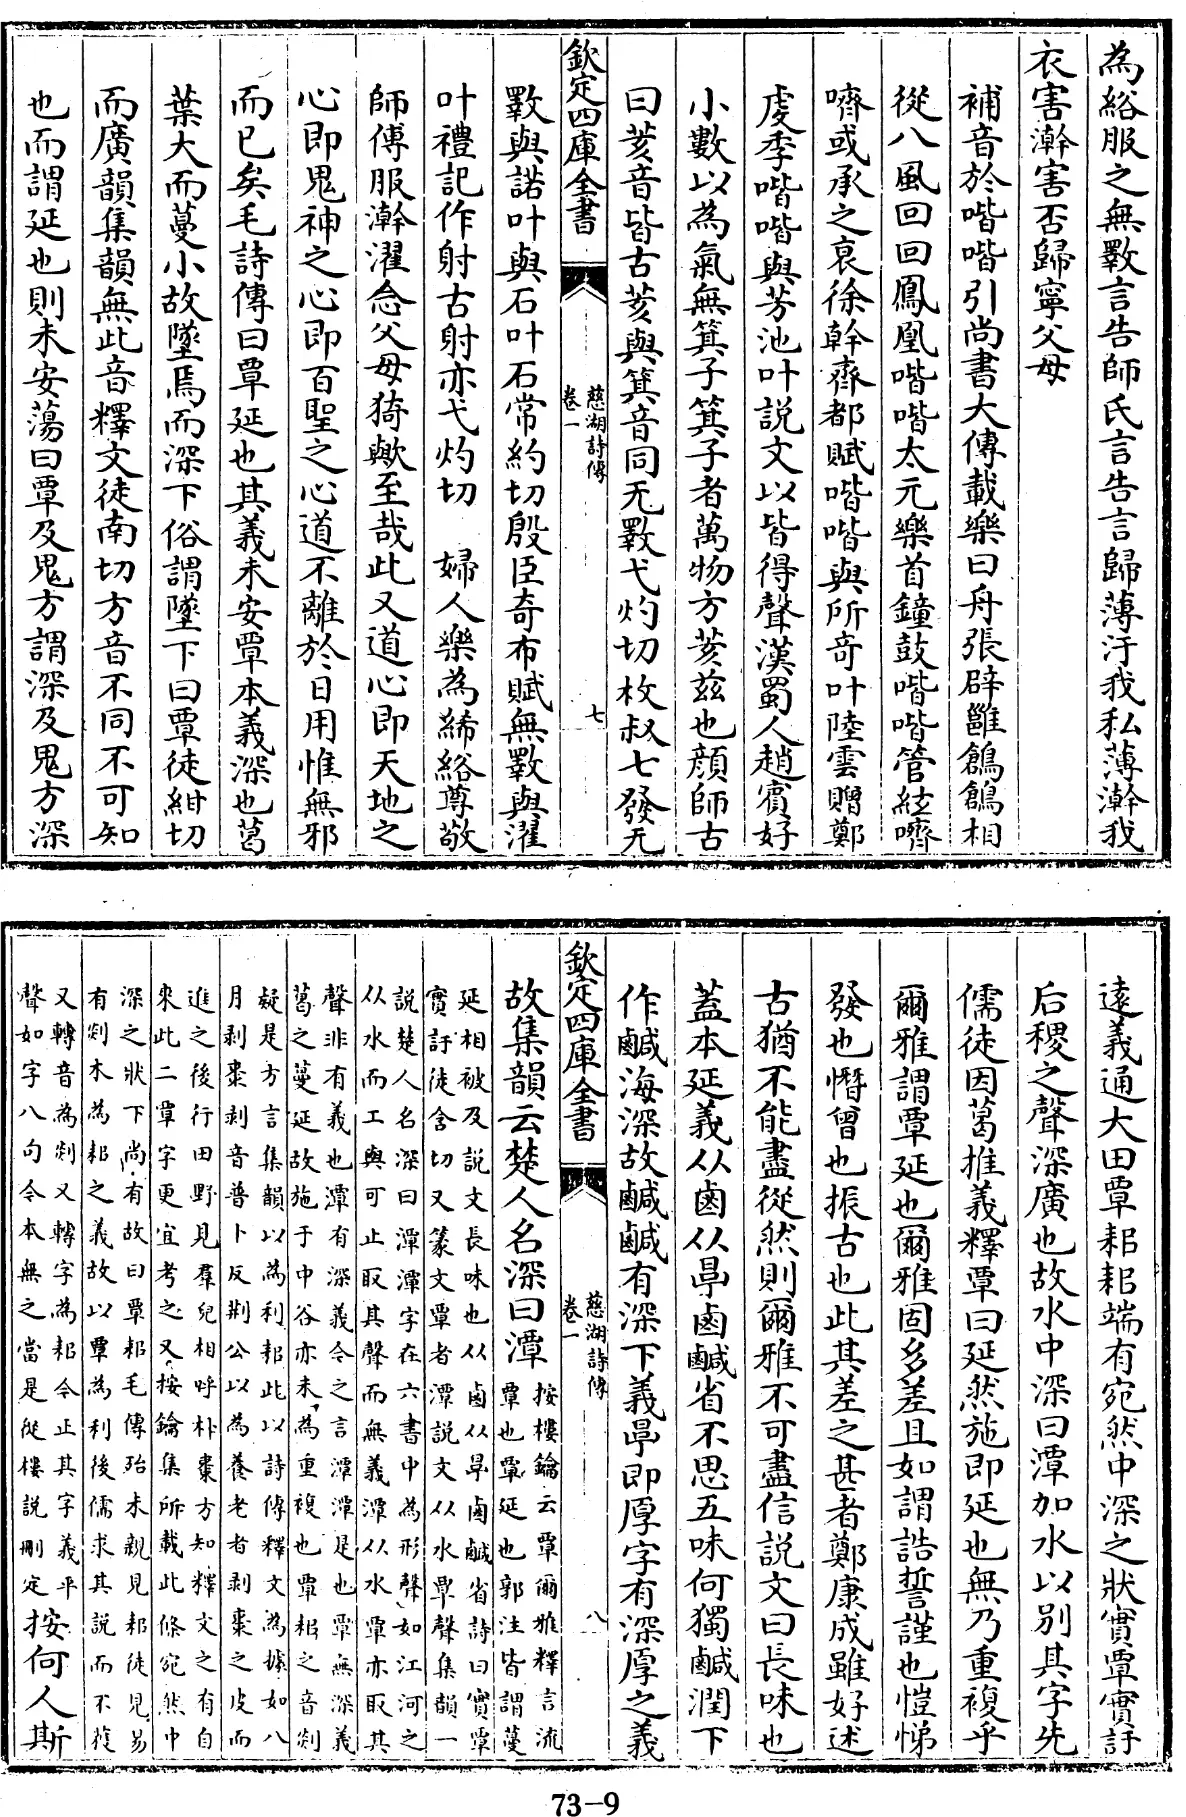 為綌服之無斁言告師氏言告言歸薄汙我私薄澣我
衣害澣害否歸寧父母
補音於喈喈引尚書大傳載樂曰舟張辟雝鶬鶬相
從八風回回鳳凰喈喈太元樂首鐘鼓喈喈管絃嚌
嚌或承之哀徐幹齊都賦喈喈與所奇叶陸雲贈鄭
虔季喈喈與芳池叶説文以皆得聲漢蜀人趙賓好
小數以為氣無箕子箕子者萬物方荄茲也顔師古
曰荄音皆古荄與箕音同无斁弋灼切枚叔七發无
欽定四庫全書
慈湖詩傳
卷一
七
斁與諾叶與石叶石常約切殷臣奇布賦無斁與濯
叶禮記作射古射亦弋灼切 婦人樂為絺綌尊敬
師傅服澣濯念父母猗歟至哉此又道心即天地之
心即鬼神之心即百聖之心道不離於日用惟無邪
而已矣毛詩傳曰覃延也其義未安覃本義深也葛
葉大而蔓小故墜焉而深下俗謂墜下曰覃徒紺切
而廣韻集韻無此音釋文徒南切方音不同不可知
也而謂延也則未安蕩曰覃及鬼方謂深及鬼方深
遠義通大田覃耜耜端有宛然中深之狀實覃實訏
后稷之聲深廣也故水中深曰潭加水以别其字先
儒徒因葛推義釋覃曰延然施即延也無乃重複乎
爾雅謂覃延也爾雅固多差且如謂誥誓謹也愷悌
發也憯曾也振古也此其差之甚者鄭康成雖好述
古猶不能盡從然則爾雅不可盡信説文曰長味也
蓋本延義从鹵从㫗鹵鹹省不思五味何獨鹹潤下
作鹹海深故鹹鹹有深下義㫗即厚字有深厚之義
欽定四庫全書
慈湖詩傳
卷一
八
故集韻云楚人名深曰潭
按樓鑰云覃爾雅釋言流
覃也覃延也郭注皆謂蔓
延相被及説文長味也从鹵从㫗鹵鹹省詩曰實覃
實訏徒含切又篆文覃者潭説文从水覃聲集韻一
説楚人名深曰潭潭字在六書中為形聲如江河之
从水而工與可止取其聲而無義潭从水覃亦取其
聲非有義也潭有深義今之言潭潭是也覃無深義
葛之蔓延故施于中谷亦未為重複也覃耜之音剡
疑是方言集韻以為利耜此以詩傳釋文為據如八
月剥棗剥音普卜反荆公以為養老者剥棗之皮而
進之後行田野見羣兒相呼朴棗方知釋文之有自
來此二覃字更宜考之又按鑰集所載此條宛然中
深之狀下尚有故曰覃耜毛傳殆未親見耜徒見易
有剡木為耜之義故以覃為利後儒求其説而不獲
又轉音為剡又轉字為耜今止其字義平
聲如字八句今本無之當是從樓説刪定
按何人斯
73-9